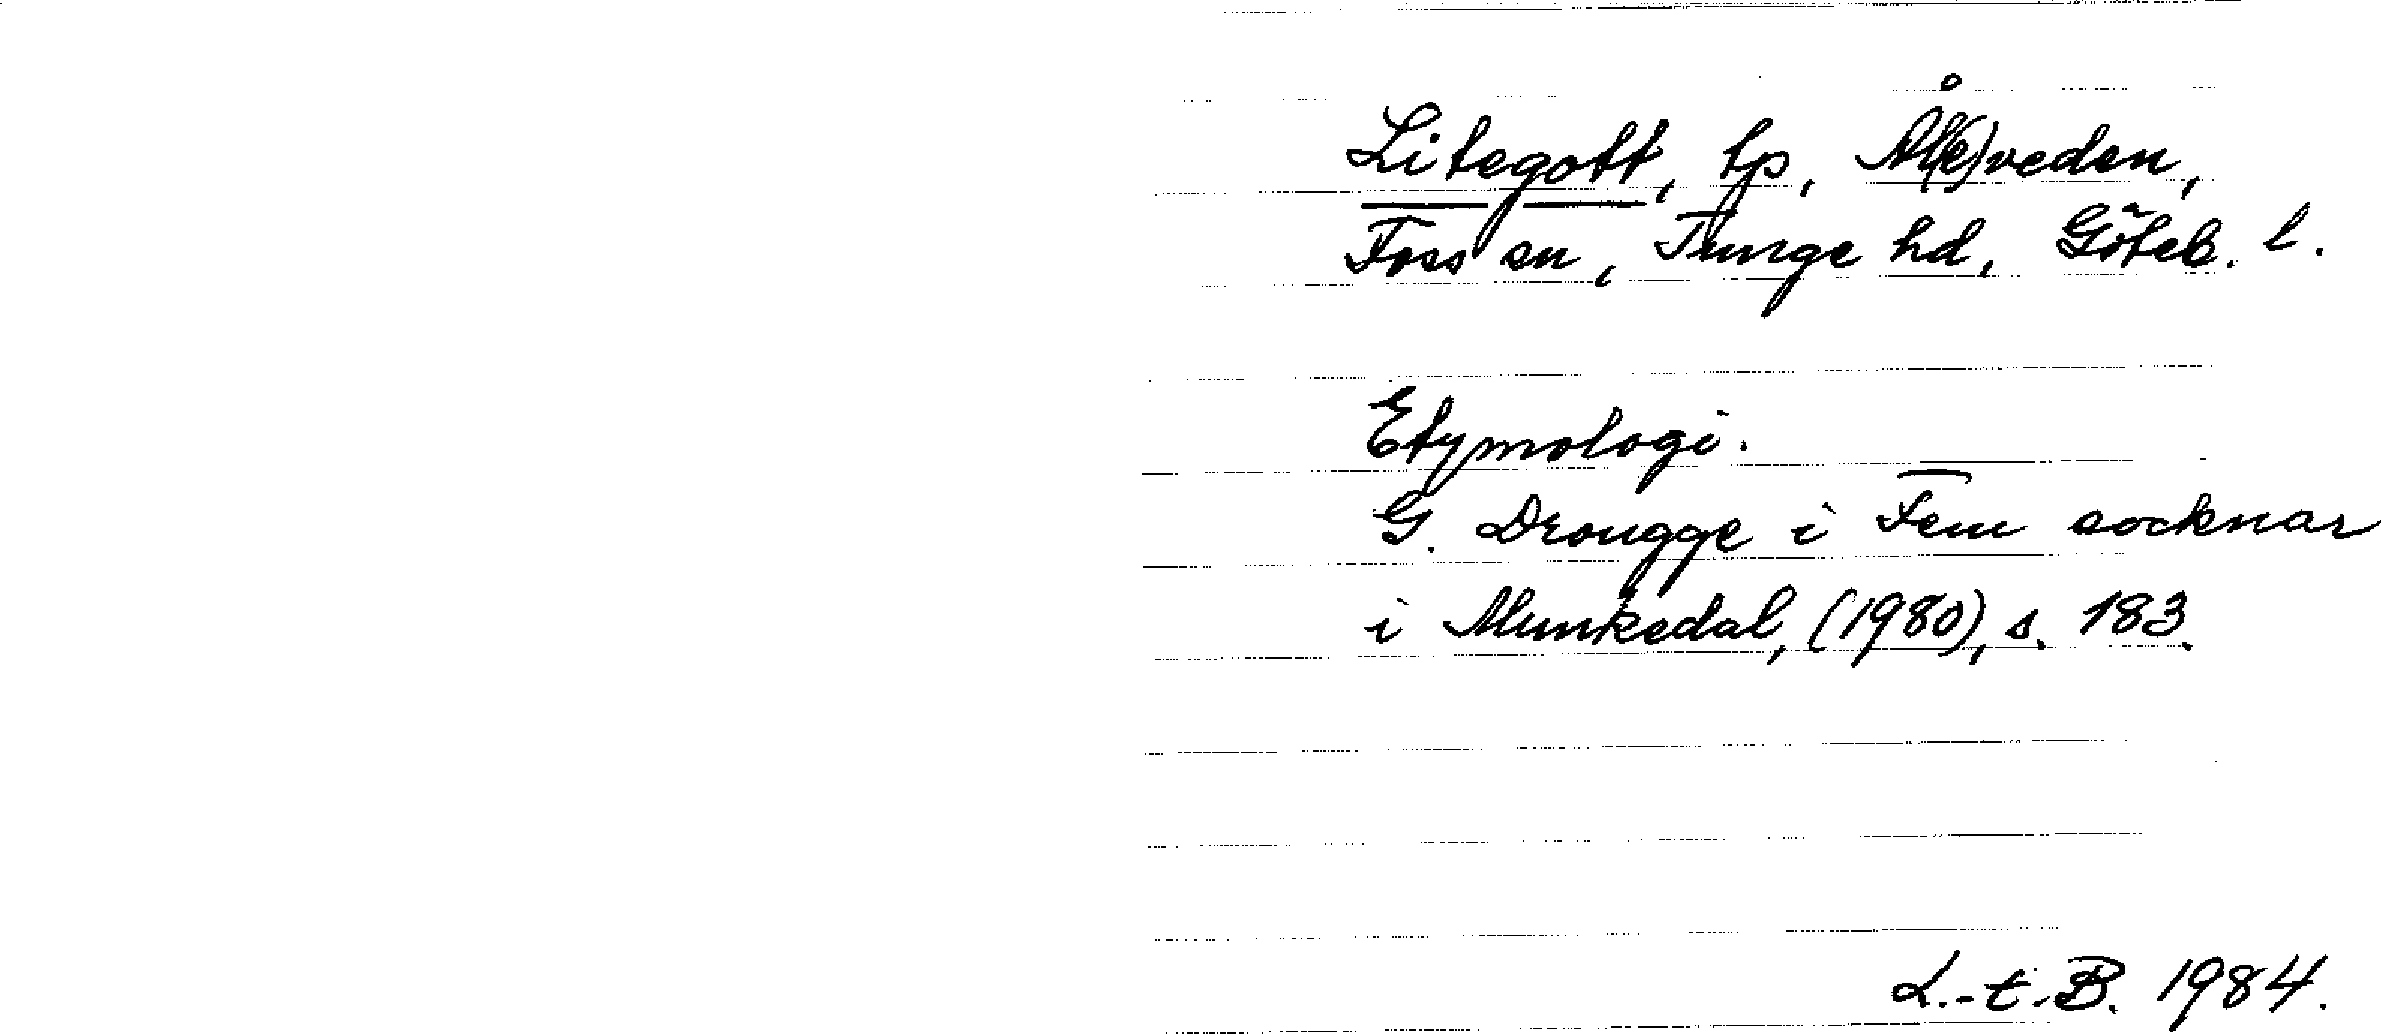 Litegott, tp, Ål(e)veden,
Foss sn, Tunge hd, Göteb. l.
Etymologi.
G. Drougge i Fem socknar
i Munkedal, (1980), s. 183.
L.-t. B. 1984.